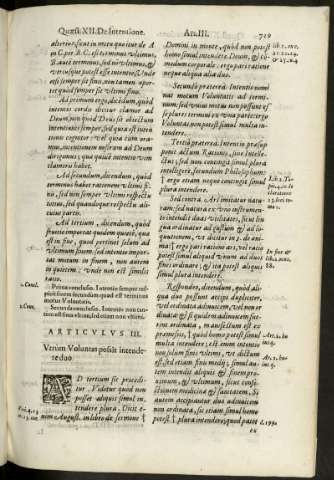 Quæst. XII. De Intentione.
Art. III.
719
alteri: sicut in motu quo itur de A
in C per B. C. est terminus vltimus,
B. autè terminus, sed nō vltimus, &
vtriusque potest esse intentio; Vnde
etsi semper sit finis, non tamen opor-
tet quod semper sit vltimi finis.
Ad primum ergo, dicendum, quòd
intentio cordis dicitur clamor ad
Deum, non quòd Deus sit obiectum
intentionis semper, sed quia est inten-
tionis cognitor: vel quia cùm ora-
mus, intentionem nostram ad Deum
dirigimus; quæ quidē intentio vim
clamoris habet.
Ad secundum, dicendum, quòd
terminus habet rationem vltimi fi-
nis, sed non semper vltimi respectu
totius, sed quandoque respectu ali-
cuius partis.
Ad tertium, dicendum, quòd
fruitio importat quietem
est in fine, quod pertinet solum ad
vltimum finem, sed intentio impor-
tat motum in finem, non autem
in quietem: vnde non est similis
ratio.
1. Concl.
Prima conclusio. Intentio semper re-
spicit finem secundum quod est terminus
motus Voluntatis.
2. Con.
Secunda conclusio. Intentio non tan-
tùm est finis vltimi, sed etiam non vltimi.
ARTICVLVS III.
Vtrum Voluntas possit intende-
re duo.
AD tertium sic procedi-
tur. Videtur quòd non
possit aliquis simul in-
tendere plura. Dicit e-
nim August. in libro de sermone
Domini in monte, quòd non potest
homo simul intendere Deum, & cō-
modum corporale. ergo pari ratione
neque aliqua alia duo.
Secundò præterea. Intentio nomi-
nat motum Voluntatis ad termi-
num; sed vnius motus non possunt es-
se plures termini ex vna parte: ergo
Voluntas non potest simul multa in-
tendere.
Tertiò præterea. Intentio præsup-
ponit actum Rationis, siue Intelle-
ctus; sed non contingit simul plura
intelligere, secundum Philosophum:
ergo etiam neque contingit simul
plura intendere.
Sed contra. Ars imitatur natu-
ram: sed natura ex vno instrumen-
to intendit duas vtilitates, sicut lin-
gua ordinatur ad gustum & ad lo-
quutionem, vt dicitur in 2. de ani-
ma: ergo pari ratione ars, vel ratio
potest simul aliquid vnum ad duos
fines ordinare; & ita potest aliquis
simul plura intendere.
Respondeo, dicendum, quòd ali-
qua duo possunt accipi dupliciter,
vel ordinata ad inuicem, vel ad inui-
cem non ordinata. Et si quidem ad in-
uicem fuerint ordinata, manifestum est ex
præmissis, quòd homo potest simul
multa intendere. est enim intentio
non solùm finis vltimi, vt dictum
est, sed etiam finis medij; simul au-
tem intendit aliquis & finem pro-
ximum, & vltimum, sicut confe-
ctionem medicinæ & sanitatem. Si
autem accipiantur duo ad inuicem
non ordinata, sic etiam simul homo
potest plura intendere; quod patet